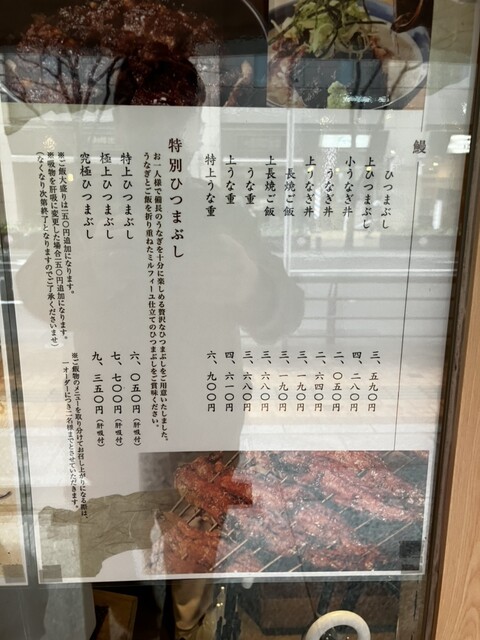 鰻
ひつまぶし 三、五九〇円
上ひつまぶし 四、二八〇円
小うなぎ丼 二、〇五〇円
うなぎ丼 二、六四〇円
上うなぎ丼 三、一九〇円
長焼ご飯 三、一九〇円
上長焼ご飯 三、六八〇円
うな重 三、六八〇円
上うな重 四、六一〇円
特上うな重 六、九〇〇円
特別ひつまぶし
お一人様で備長のうなぎを十分に楽しめる贅沢なひつまぶしをご用意いたしました。
うなぎとご飯を折り重ねたミルフィーユ仕立てのひつまぶしをご賞味ください。
特上ひつまぶし 六、〇五〇円（肝吸付）
極上ひつまぶし 七、七〇〇円（肝吸付）
究極ひつまぶし 九、三五〇円（肝吸付）
※ご飯物のメニューを取り分けてお召し上がりになる際は、
一オーダーにつき二名様までとさせていただきます。
※ご飯大盛りは一五〇円追加になります。
※吸物を肝吸に変更した場合一五〇円追加になります。
（なくなり次第終了となりますのでご了承くださいませ）